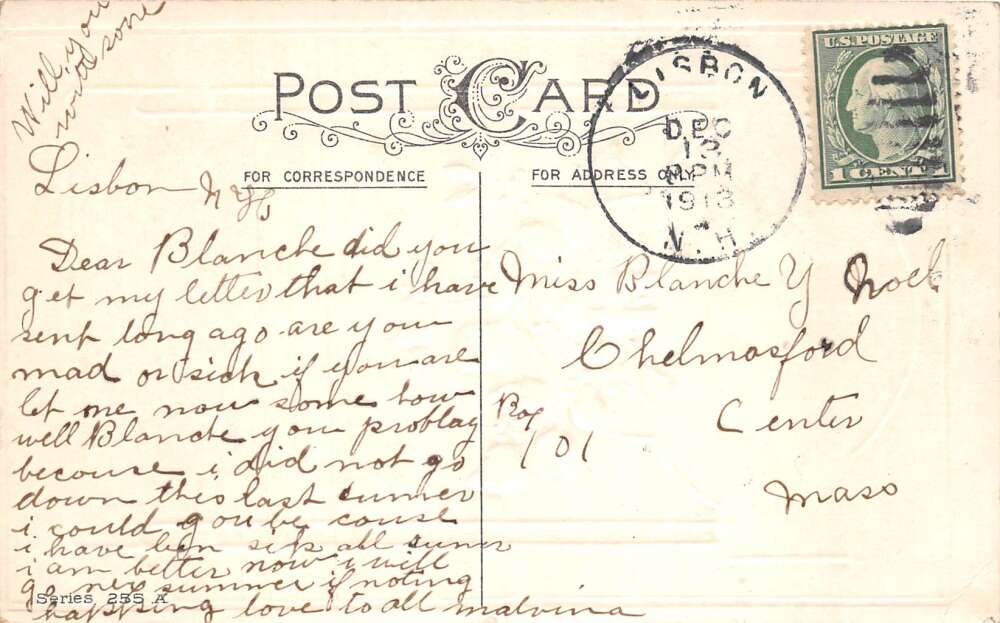 Will you
writ sone
POST CARD
FOR CORRESPONDENCE
FOR ADDRESS ONLY
LISBON
DEC
13
PM
1913
N.H.
U.S. POSTAGE
1 CENT 1
Lisbon N H
Dear Blanche did you
get my letter that i have
sent long ago are you
mad or sick if you are
let me now some how
well Blanche you problay
becouse i did not go
down this last sumer
i could gou be couse
i have ben sik all sumer
i am better now i will
go nex summer if noting
happing love to all malvina
Series 255 A
Miss Blanche Y Noel
Chelmasford
Center
Mass
Box
101